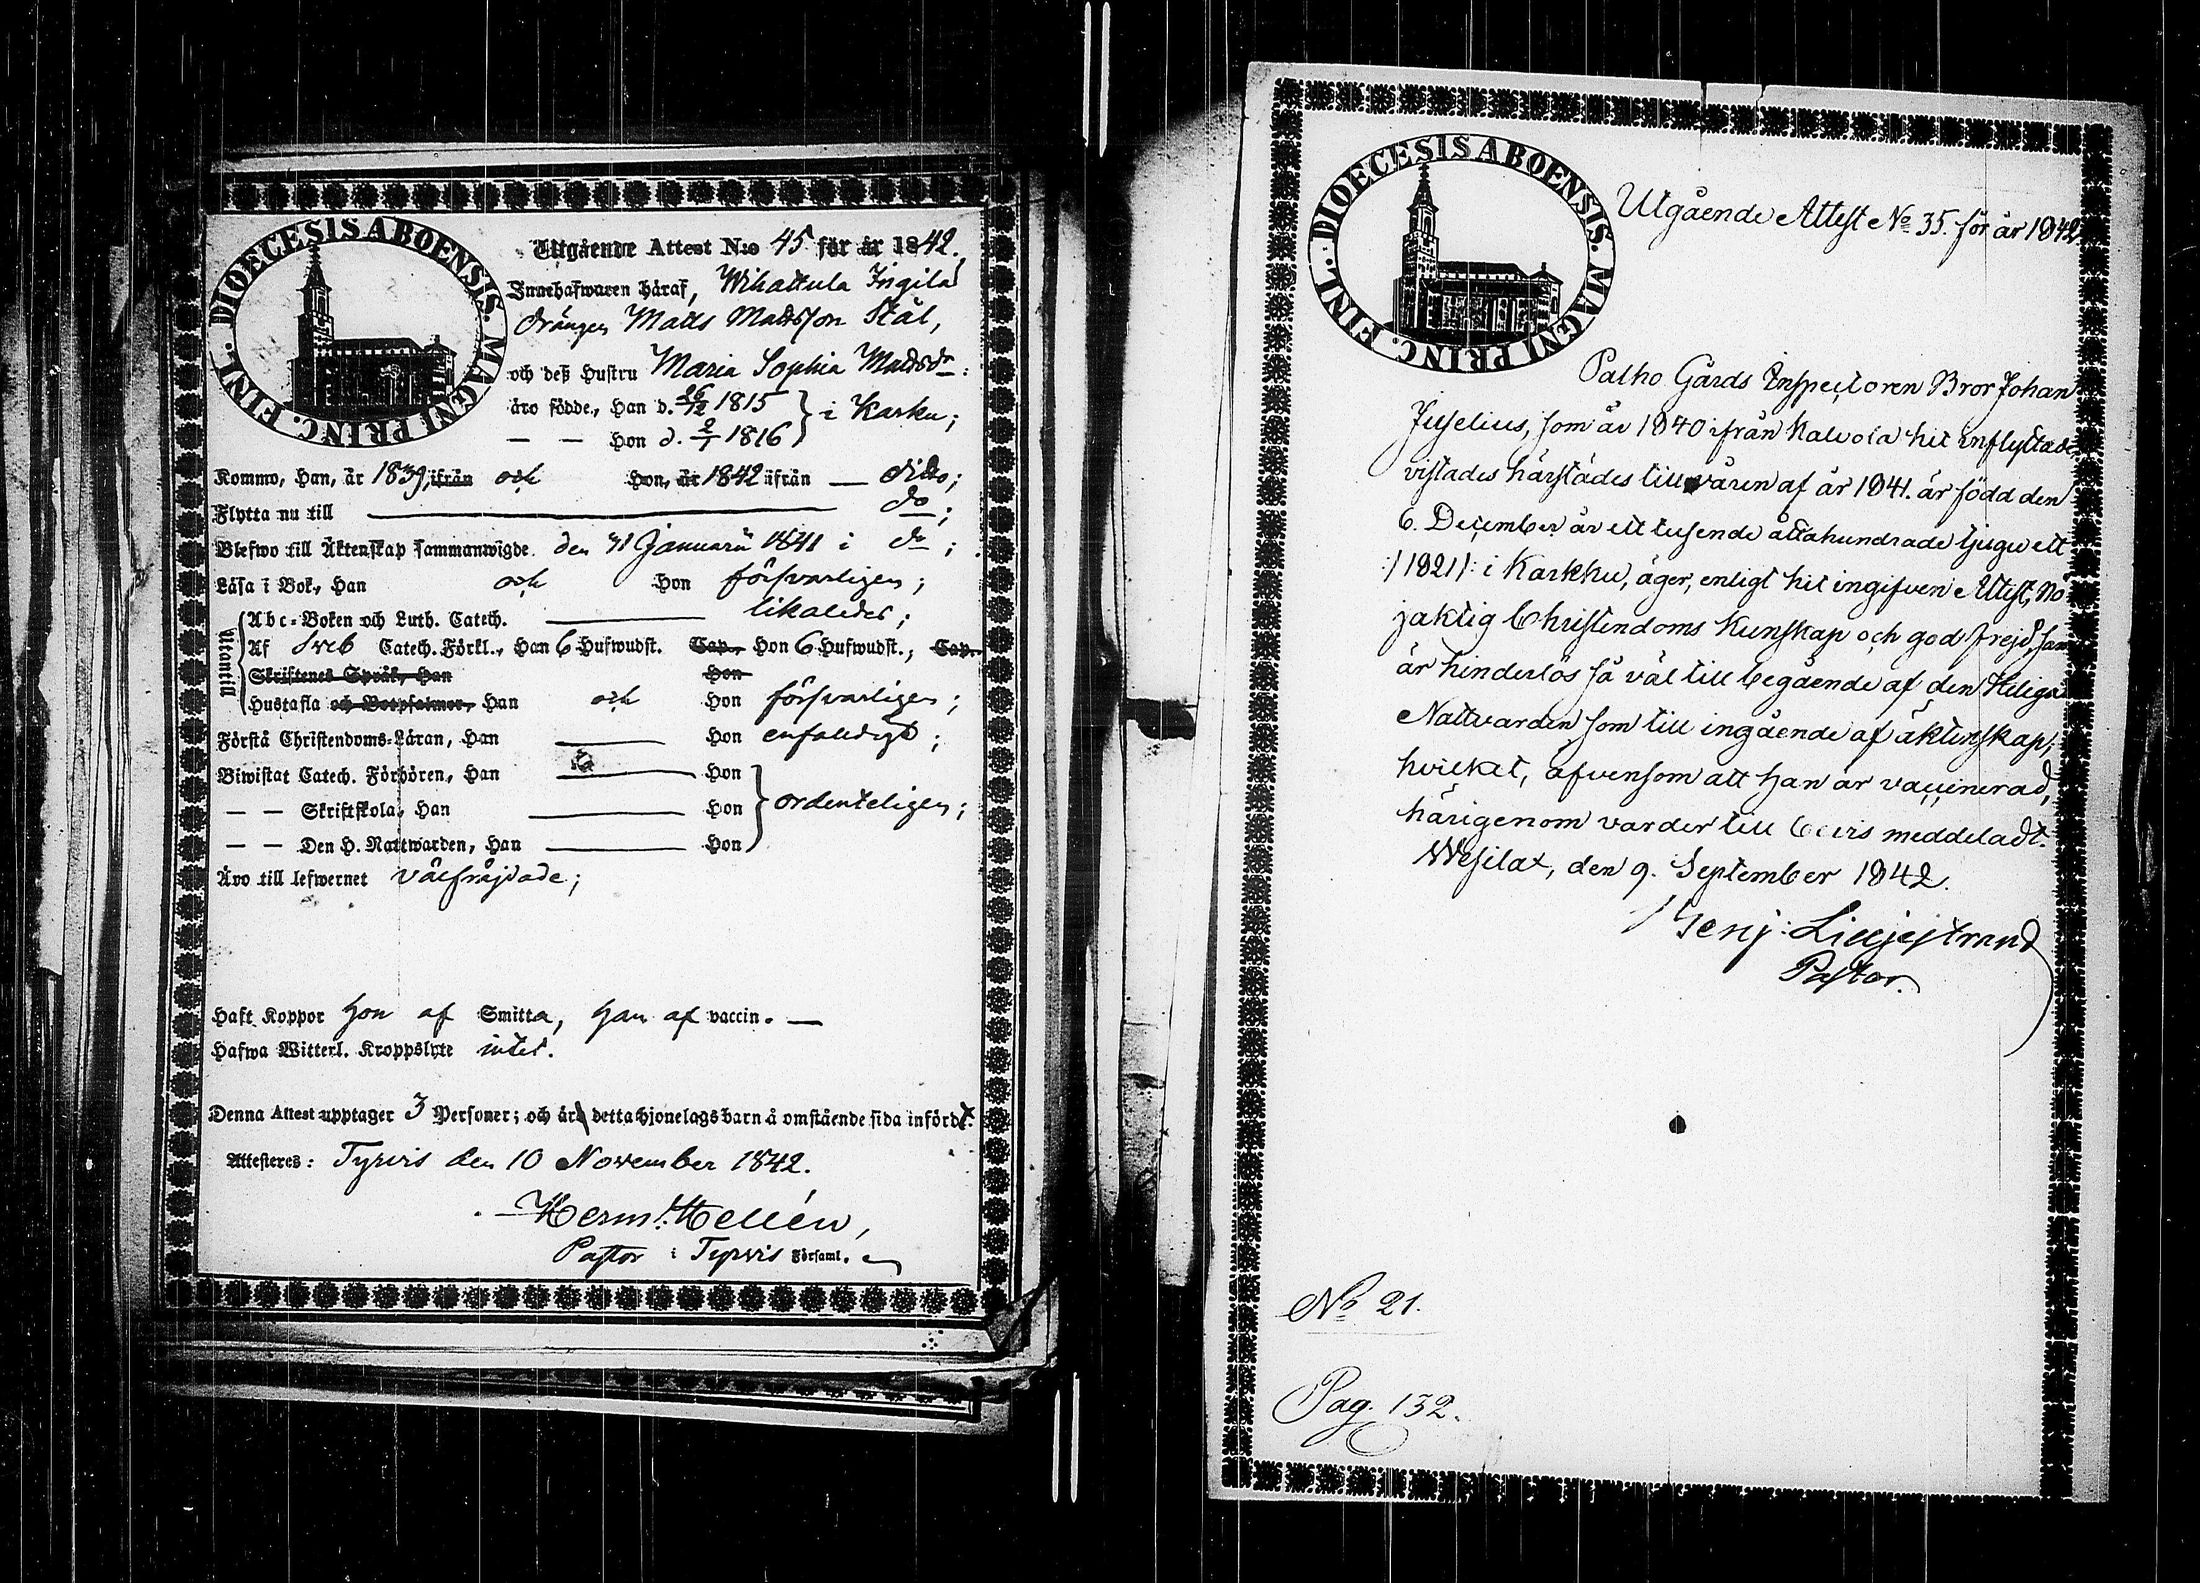 DIOECESIS ABOENSIS. MAGNI PRINC. FINL.
Utgående Attest N:o 45 för år 1842.
Innehafwaren häraf, Wihattula Ingilä
drängen Matts Mattsson Stål,
och deß Hustru Maria Sophia Mattsdr:
äro födde, Han d. 26/12 1815 } i Karku;
— — Hon d. 2/7 1816
Kommo, Han, år 1839, ifrån och Hon, år 1842 ifrån — dito;
Flytta nu till — do;
Blefwo till Äktenskap sammanwigde den 31 Januarii 1841 i do;
Läsa i Bok, Han och Hon försvarligen;
Utantill
Abc-Boken och Luth. Catech. — likaledes;
Af Sveb Catech. Förkl., Han 6 Hufwudst. Cap., Hon 6 Hufwudst.; Cap.
Skriftenes Språk, Han Hon
Hustafla och Botpsalmer, Han och Hon försvarligen;
Förstå Christendoms-Läran, Han — Hon enfaldigt;
Biwistat Catech. Förhören, Han — Hon
— — Skriftskola, Han — Hon } ordenteligen;
— — Den H. Nattwarden, Han — Hon
Äro till lefwernet välfräjdade;
Haft Koppor Hon af Smitta, Han af vaccin. —
Hafwa Witterl. Kroppslyte intet.
Denna Attest upptager 3 Personer; och är detta hjonelags barn å omstående sida infördt.
Attesteres: Tyrvis den 10 November 1842.
Herm. Hellén,
Pastor i Tyrvis Församl.
DIOECESIS ABOENSIS. MAGNI PRINC. FINL.
Utgående Attest No 35. för år 1842
Palho Gårds Inspectoren Bror Johan
Juselius, som år 1840 ifrån Kalvola hit inflyttade
vistades härstädes till våren af år 1841. är född den
6. December år ett tusende åttahundrade tjugu ett
:/1821/: i Karkku, äger, enligt hit ingifven Attest, No
jaktig Christendoms Kunskap och god frejd, samt
är hinderlös så väl till begående af den Heliga
Nattvarden som till ingående af äktenskap;
hvilket, äfvensom att han är vaccinerad,
härigenom varder till bevis meddeladt.
Wesilax, den 9. September 1842.
Benj: Lilljestrand
Pastor.
No 21.
Pag. 132.